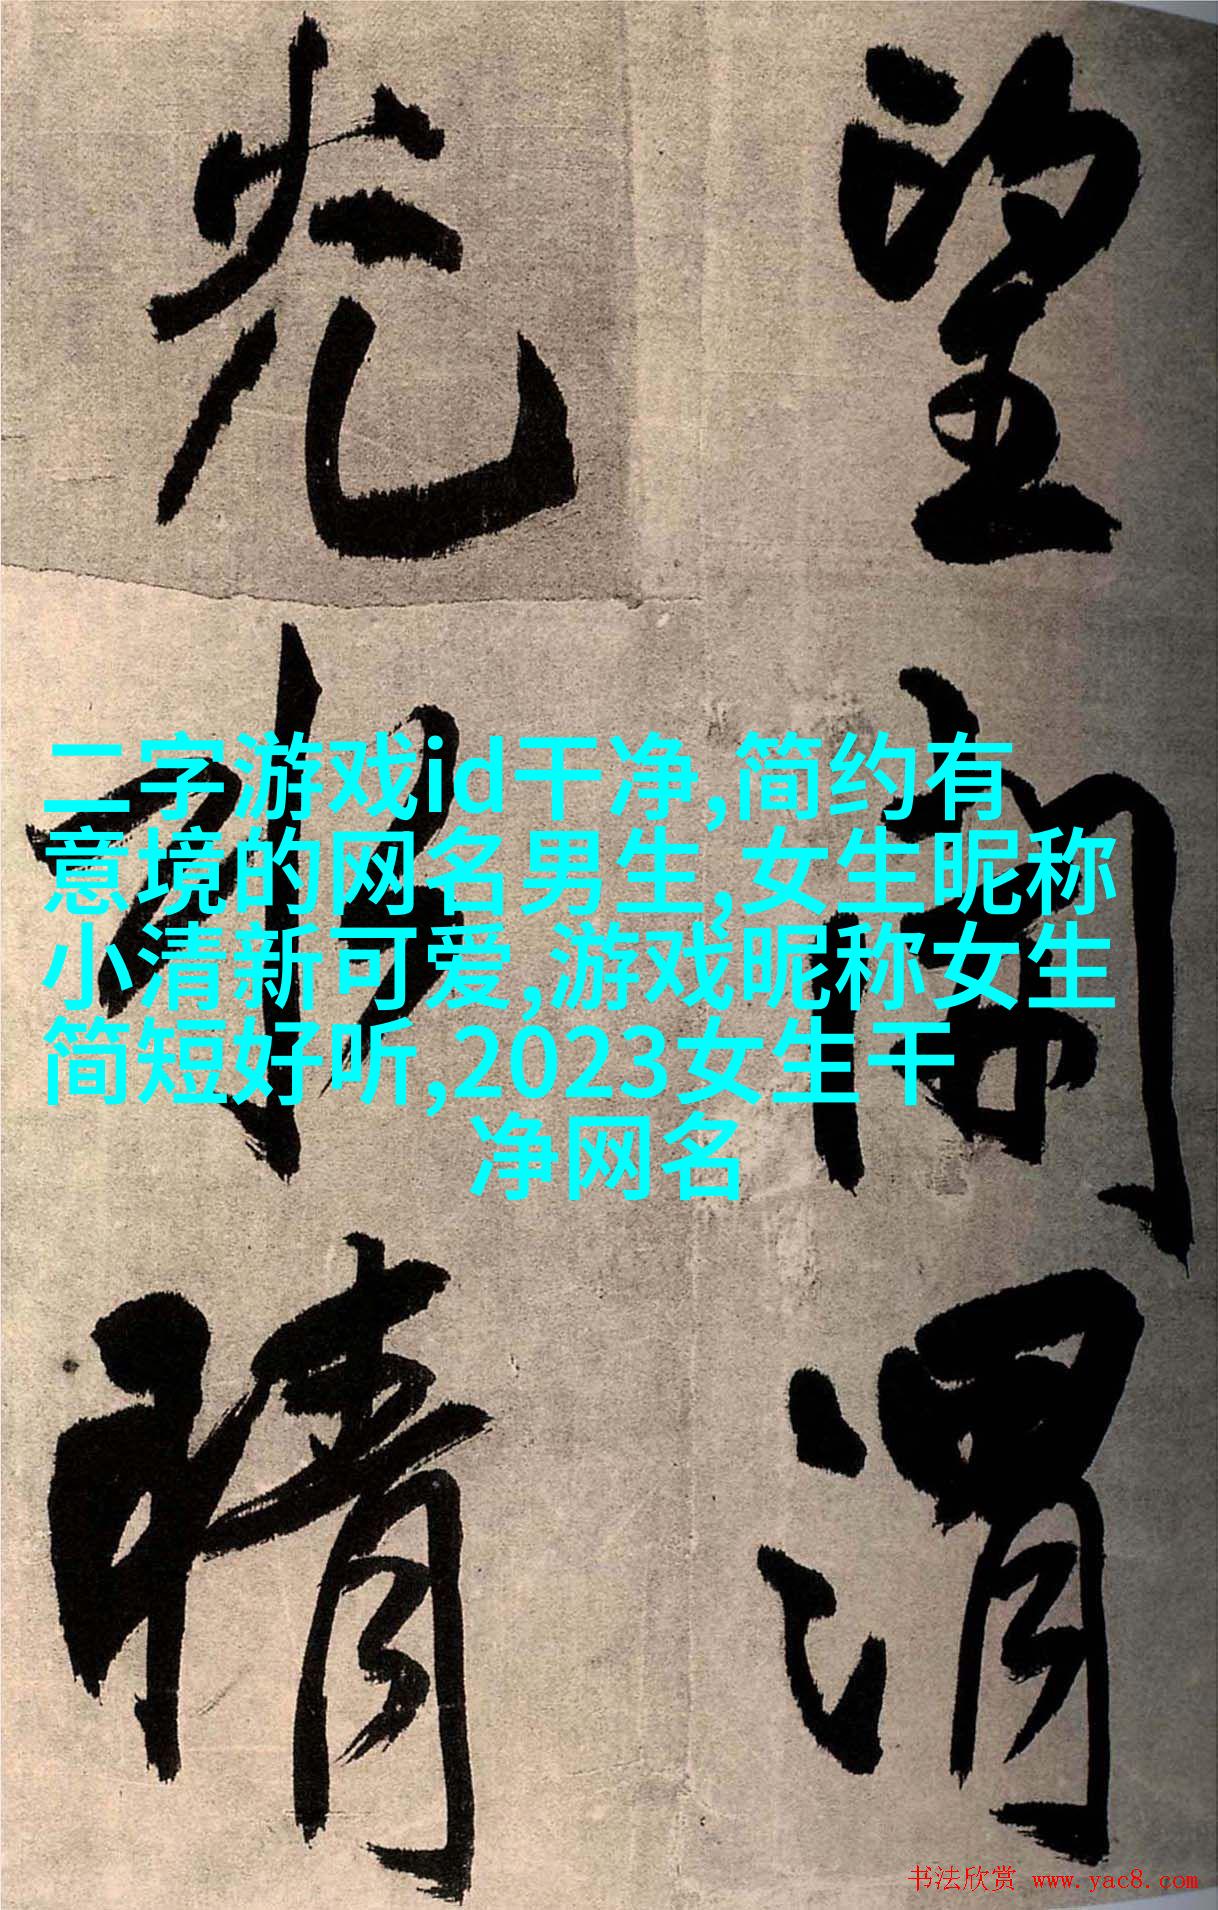 望渭
光晴
二字游戏id干净,简约有
意境的网名男生,女生昵称
小清新可爱,游戏昵称女生
简短好听,2023女生干
净网名
书法欣赏 www.yac8.com